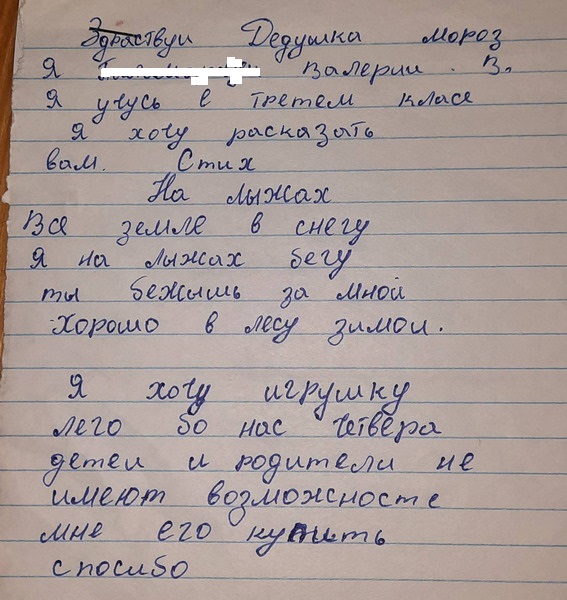 Здраствуи Дедушка мороз
Я Валерии. В.
Я учусь в третем класе
Я хочу расказать
вам. Стих
На лыжах
Все земле в снегу
Я на лыжах бегу
ты бежышь за мной
Хорошо в лесу зимои.
Я хочу игрушку
лего бо нас четвера
детеи и родители не
имеют возможносте
мне его купить
спосибо